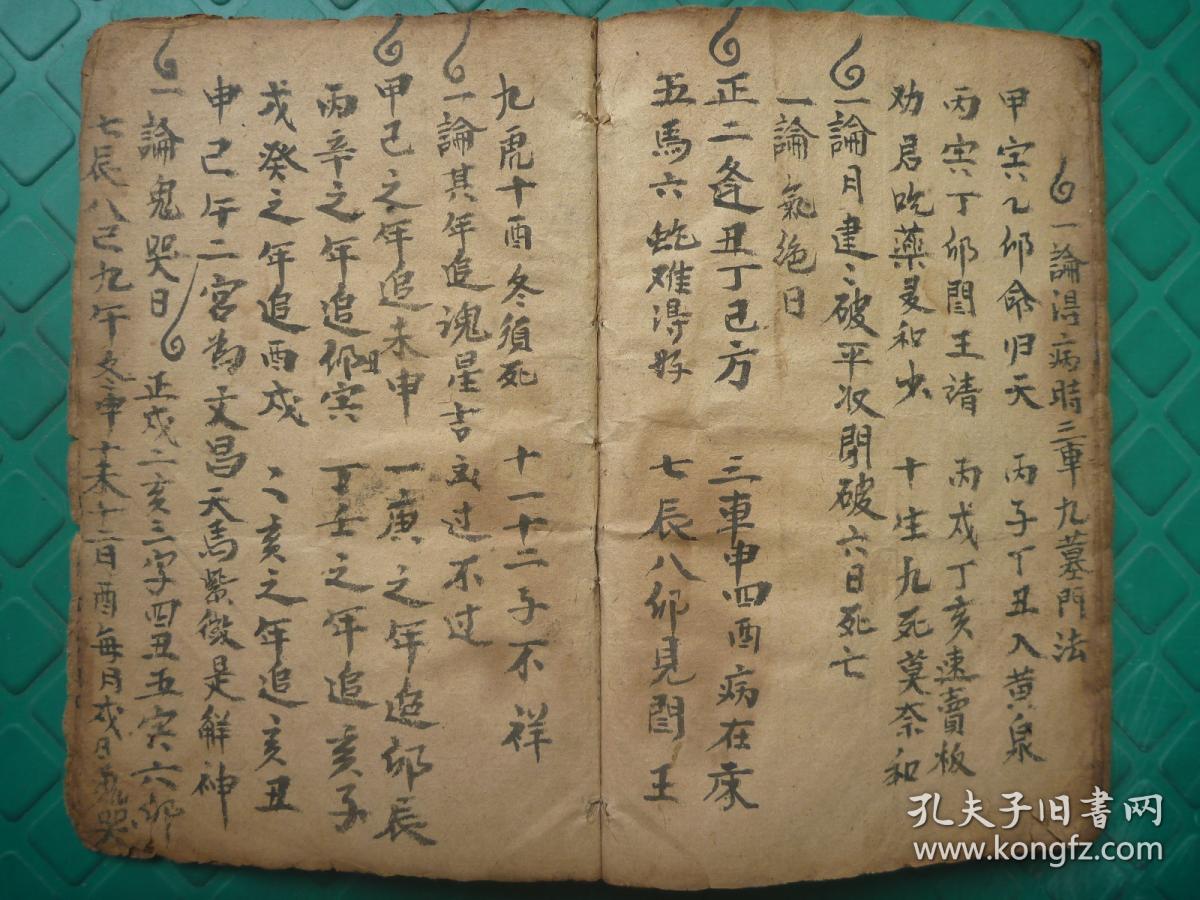 一論得病時三車九墓門法
甲寅乙卯命归天 丙子丁丑入黄泉
丙寅丁卯閻王请 丙戌丁亥速賣板
劝君吃藥 和 十生九死莫奈和
一論月建〻破平收閉破六日死亡
一論氣絶日
正二逢丑丁己方 三車申四酉病在床
五馬六蛇难得好 七辰八卯見閻王
九虎十酉冬須死 十一十二子不祥
一論其年追魂星吉凶过不过
甲己之年追未申 一庚之年追卯辰
丙辛之年追卯寅 丁壬之年追亥子
戊癸之年追酉戍 〻亥之年追亥丑
申己午二宮為文昌天馬紫微是解神
一論鬼哭日 正戍二亥三字四丑五寅六卯
七辰八己九午 十未十二日酉每月戍日 哭
孔夫子旧书网
@www.kongfz.com